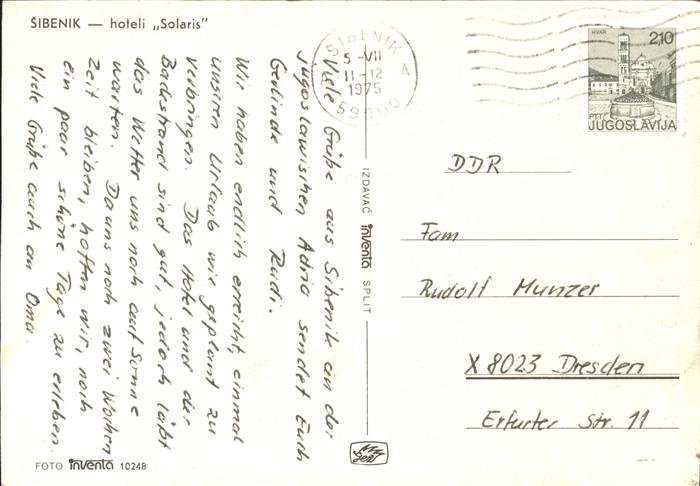 ŠIBENIK — hoteli „Solaris"
Viele Grüße aus Sibenik an der
jugoslawischen Adria sendet Euch
Gerlinde und Rudi.
Wir haben endlich erreicht, einmal
unsren Urlaub wie geplant zu
verbringen. Das Hotel und der
Badestrand sind gut, jedoch läßt
das Wetter uns noch auf Sonne
warten. Da uns noch zwei Wochen
Zeit bleiben, hoffen wir, noch
ein paar schöne Tage zu erleben.
Viele Grüße auch an Oma.
FOTO inventa 10248
IZDAVAČ inventa SPLIT
ŠIBENIK A
5-VII
11-12
1975
59000
HVAR
2,10
PTT
JUGOSLAVIJA
DDR
Fam
Rudolf Munzer
X 8023 Dresden
Erfurter Str. 11